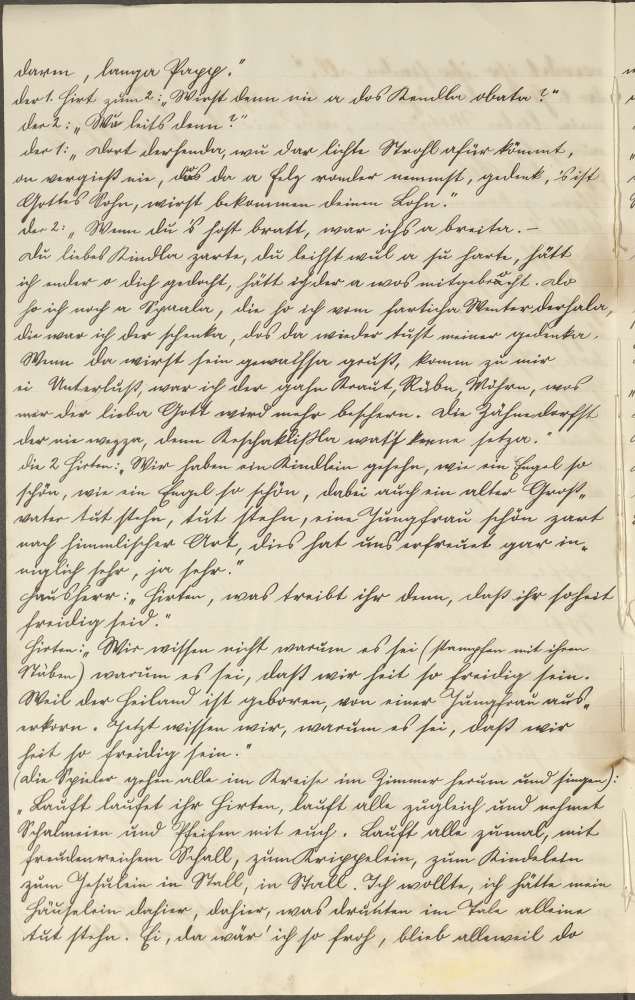 darm, langa Papp."
der 1. Hirt zum 2: „Wirst denn nie a dos Kendlba obata?"
der 2: „Wu leits denn?"
der 1: „Dort derhenda, wu dar lichte Strohl afür kömmt,
on vergieß nie, dos da a Felz ronder nemmst, gedenk, 's ist
Gottes Sohn, wirst bekommen deinen Lohn."
der 2: „Wenn du 's host bratt, war ichs a breita. –
Du liebes Kindla zarte, du leihst wul a su harte, hätt
ich ender o dich gedocht, hätt ich der a wos mitgebrocht. Do
ho ich noch a Spaala, die ho ich vom farticha Wenter derhala,
die war ich der schenka, dos da wieder tust meiner gedenka.
Wenn da wirst sein gewachsa gruß, komm zu mir
ei Unterluft, war ich der gahn Kraut, Rübn, Möhrn, wos
mer der lieba Gott wird mehr beschern. Die Zähne derfst
der nie wezza, denn Keschaklißla wats kenne setza."
die 2 Hirten: „Wir haben ein Kindlein gesehn, wie ein Engel so
schön, wie ein Engel so schön, dabei auch ein alter Groß-
vater tut stehn, tut stehn, eine Jungfrau schön zart
nach himmlischer Art, dies hat uns erfreuet gar in-
niglich sehr, ja sehr."
Hausherr: „Hirten, was treibt ihr denn, daß ihr so heit
freidig seid."
Hirten: „Wir wissen nicht warum es sei (stampfen mit ihren
Stäben) warum es sei, daß wir heit so freidig sein.
Weil der Heiland ist geboren, von einer Jungfrau aus-
erkorn. Jetzt wissen wir, warum es sei, daß wir
heit so freidig sein."
(Die Spieler gehen alle im Kreise im Zimmer herum und singen):
„Lauft laufet ihr Hirten, lauft alle zugleich und nehmet
Schalmeien und Pfeifen mit euch. Lauft alle zumal, mit
freudenreichem Schall, zum Krippelein, zum Kindelein
zum Jesulein in Stall, in Stall. Ich wollte, ich hätte mein
Häuselein dahier, dahier, was drunten im Tale alleine
tut stehn. Ei, da wär' ich so froh, blieb alleweil do